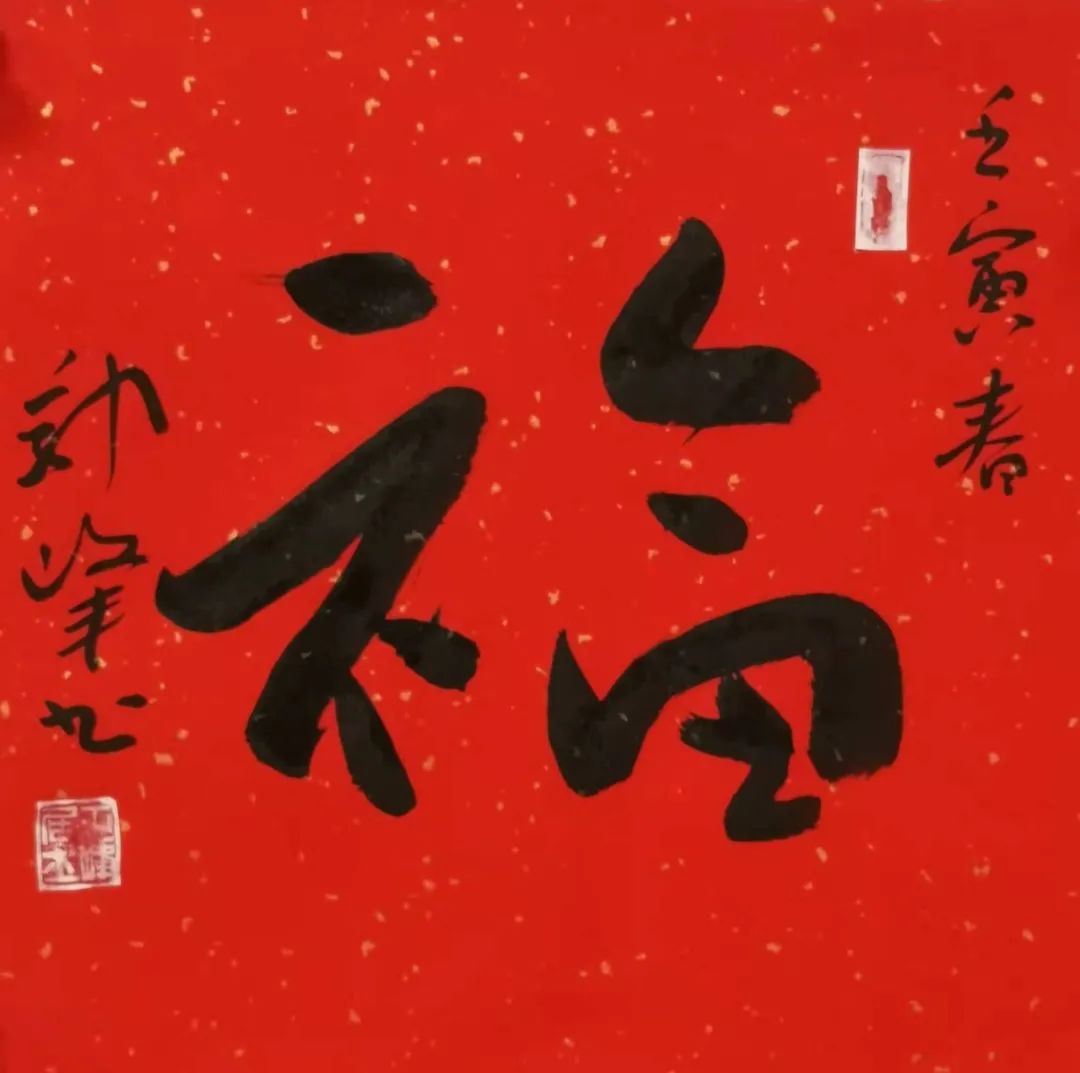 壬寅春
福
郭峰书